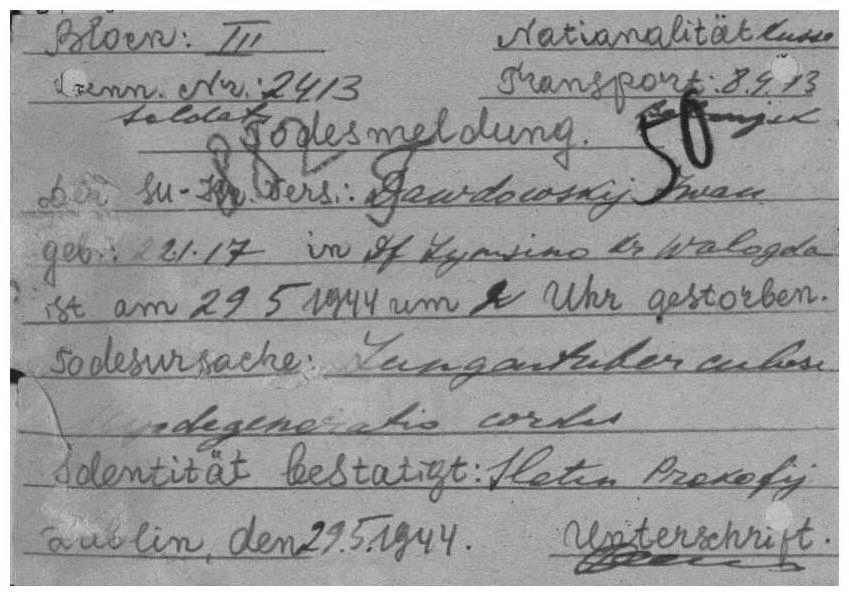 Block: III Nationalität Russe
Kenn. Nr.: 2413 Transport: 8.9.43
Soldat
Todesmeldung. 50
Der Su-Kr. Vers.: Dawdowskij Iwan
geb.: 2.1.17 in Df Kr Wologda
ist am 29 5 1944 um 2 Uhr gestorben.
Todesursache: Lungentuberculose
Myodegeneratio cordis
Identität bestatigt: Prokofij
Lublin, den 29.5.1944. Unterschrift.